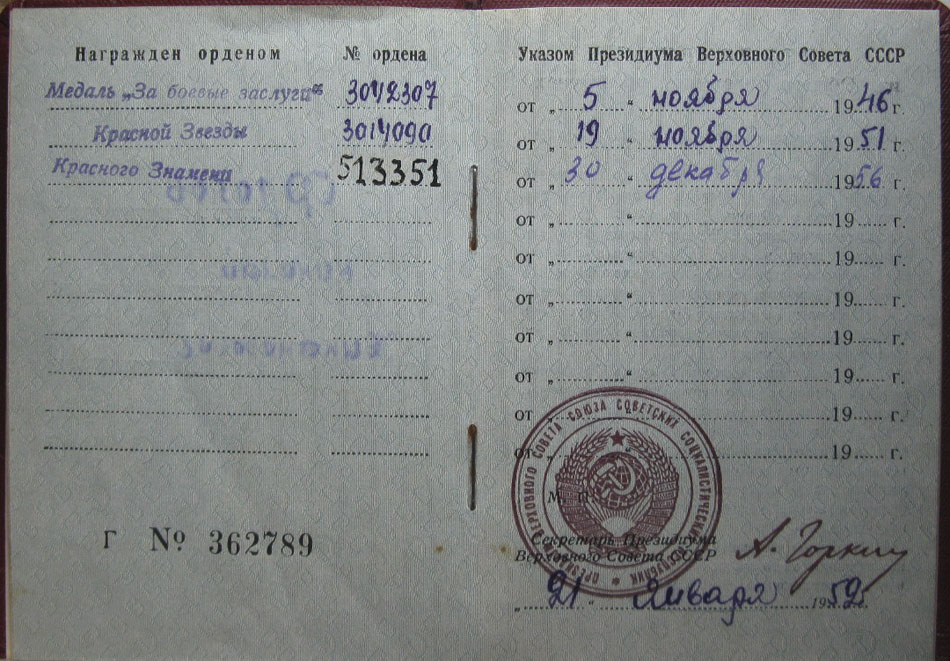 Награжден орденом № ордена
Медаль „За боевые заслуги“ 3042307
Красной Звезды 3014090
Красного Знамени 513351
Г № 362789
Указом Президиума Верховного Совета СССР
от „ 5 “ ноября 1946 г.
от „ 19 “ ноября 1951 г.
от „ 30 “ декабря 1956 г.
от „ “ 19 г.
от „ “ 19 г.
от „ “ 19 г.
от „ “ 19 г.
от „ “ 19 г.
от „ “ 19 г.
от „ “ 19 г.
ПРЕЗИДИУМ ВЕРХОВНОГО СОВЕТА СОЮЗА СОВЕТСКИХ СОЦИАЛИСТИЧЕСКИХ РЕСПУБЛИК
М. П.
Секретарь Президиума
Верховного Совета СССР А. Горкин
„ 21 “ Января 1952 г.